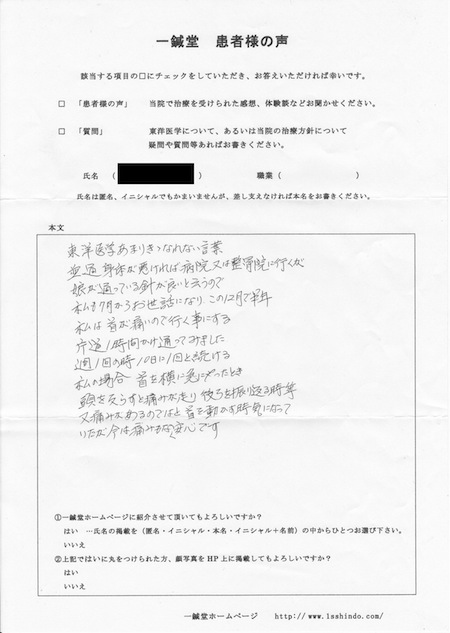 一鍼堂 患者様の声
該当する項目の□にチェックをしていただき、お答えいただければ幸いです。
□ 「患者様の声」 当院で治療を受けられた感想、体験談などお聞かせください。
□ 「質問」 東洋医学について、あるいは当院の治療方針について
疑問や質問等あればお書きください。
氏名 ( ) 職業 ( )
氏名は匿名、イニシャルでもかまいませんが、差し支えなければ本名をお書きください。
本文
東洋医学あまりきゝなれない言葉
普通 身体が悪ければ病院又は整骨院に行くが
娘が通っている針が良いと云うので
私も7月からお世話になり この12月で半年
私は首が痛いので行く事にする
片道1時間かけ通ってみました
週1回の時 10日に1回と続ける
私の場合 首を横に急にやったとき
頭をそらすと痛みが走り 後ろを振り返る時等
又痛みがあるのではと 首を動かす時気になって
いたが今は痛みもなく安心です
①一鍼堂ホームページに紹介させて頂いてもよろしいですか？
はい …氏名の掲載を（匿名・イニシャル・本名・イニシャル＋名前）の中からひとつお選び下さい。
いいえ
②上記ではいに丸をつけられた方、顔写真をHP上に掲載してもよろしいですか？
はい
いいえ
一鍼堂ホームページ http://www.1sshindo.com/